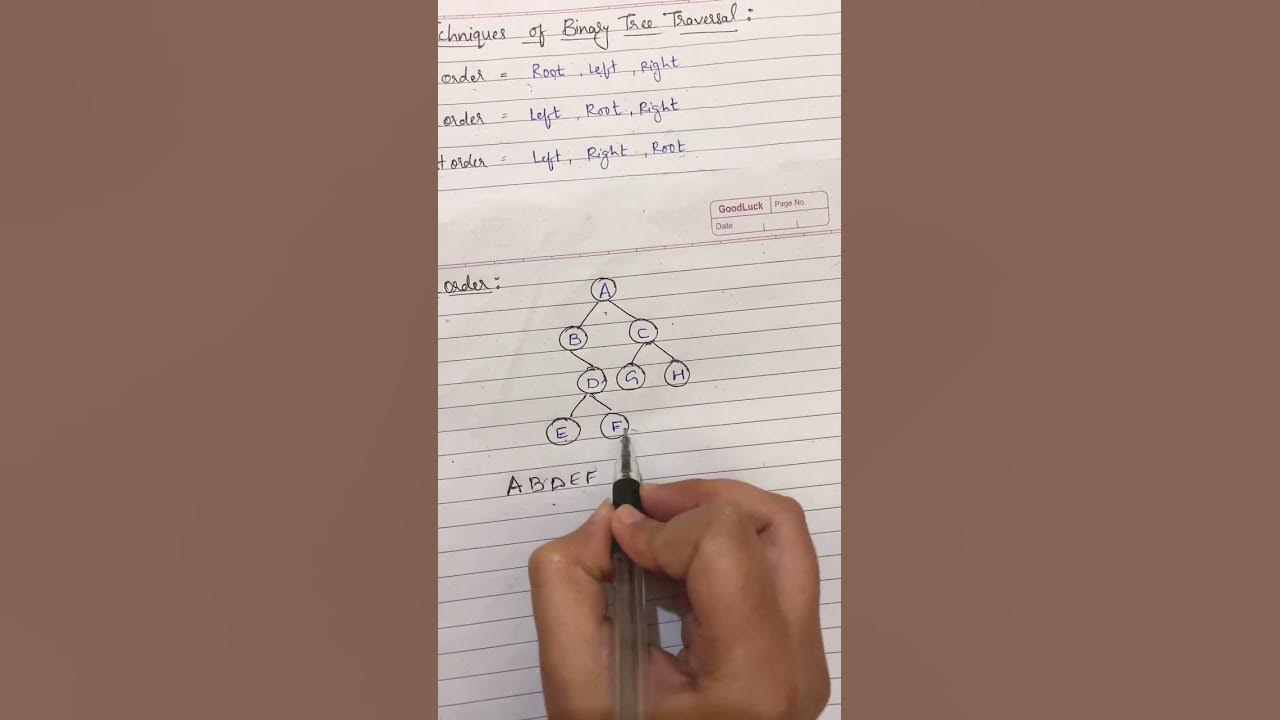 chniques of Binary Tree Traversal:
order = Root, Left, Right
order = Left, Root, Right
t order = Left, Right, Root
GoodLuck Page No.
Date
order:
A
B C
D G H
E F
A B D E F